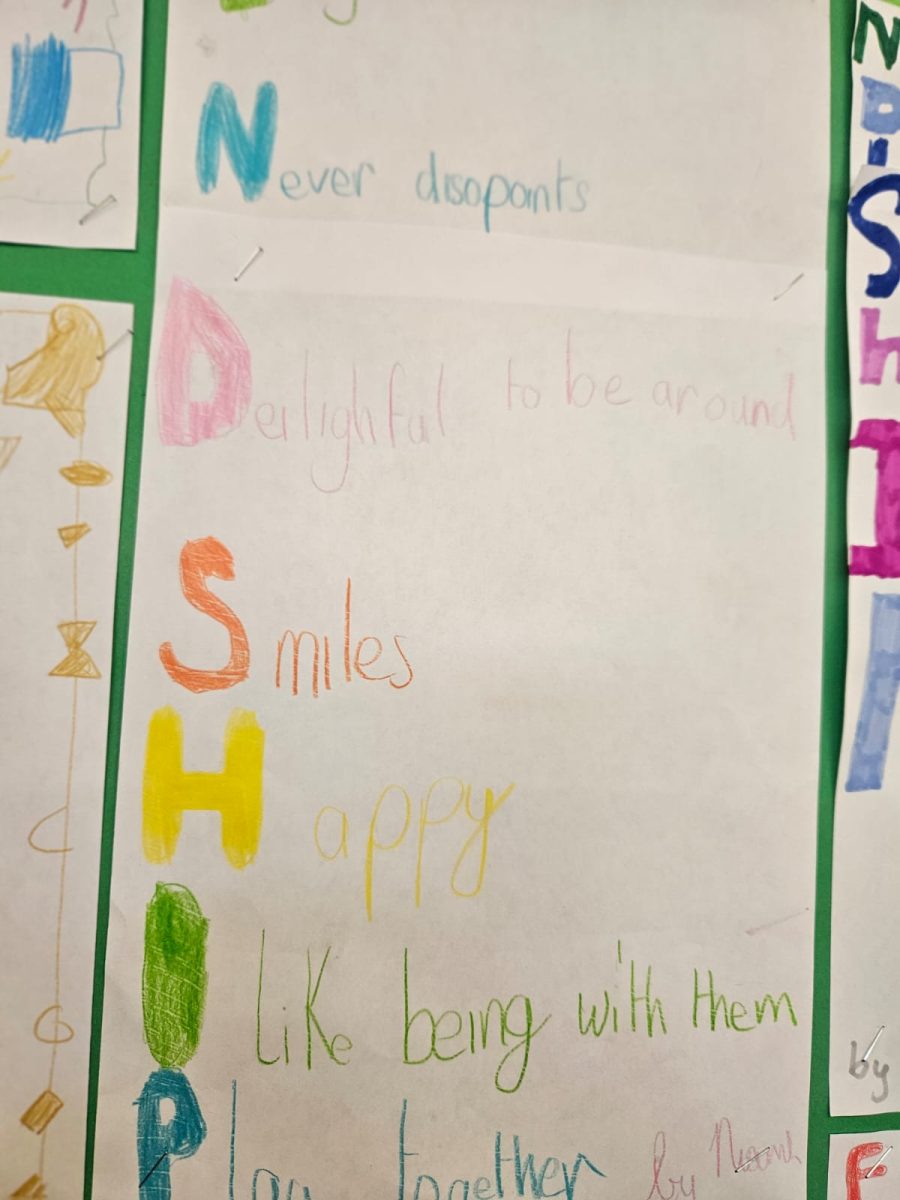 Never disopants
Deilighful to be around
Smiles
Happy
I like being with them
Play together by
N
D
I
S
h
I
P
by
F